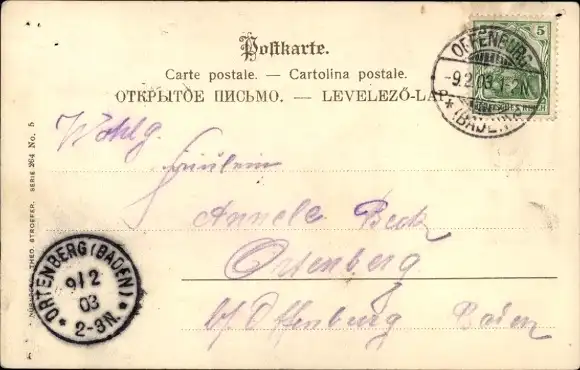 Postkarte.
Carte postale. — Cartolina postale.
ОТКРЫТОЕ ПИСЬМО. — LEVELEZŐ-LAP
5
OFFENBURG
-9.2.03. 1-2 N.
* (BADEN) *
Wohlg.
Fräulein
Annele Beck
Ortenberg
b/Offenburg Baden
ORTENBERG (BADEN)
9/2
03
* 2-3N. *
THEO. STROEFER. SERIE 264 No. 5